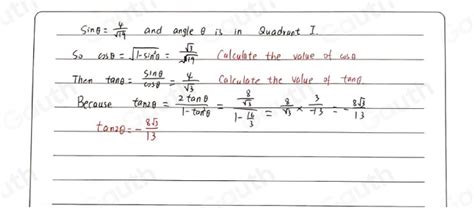 sinθ = 4/√19 and angle θ is in Quadrant I.
So cosθ = √(1-sin²θ) = √3/√19 Calculate the value of cosθ
Then tanθ = sinθ/cosθ = 4/√3 Calculate the value of tanθ.
Because tan2θ = 2tanθ/(1-tan²θ) = (8/√3)/(1-16/3) = 8/√3 × 3/-13 = -8√3/13
tan2θ = -8√3/13